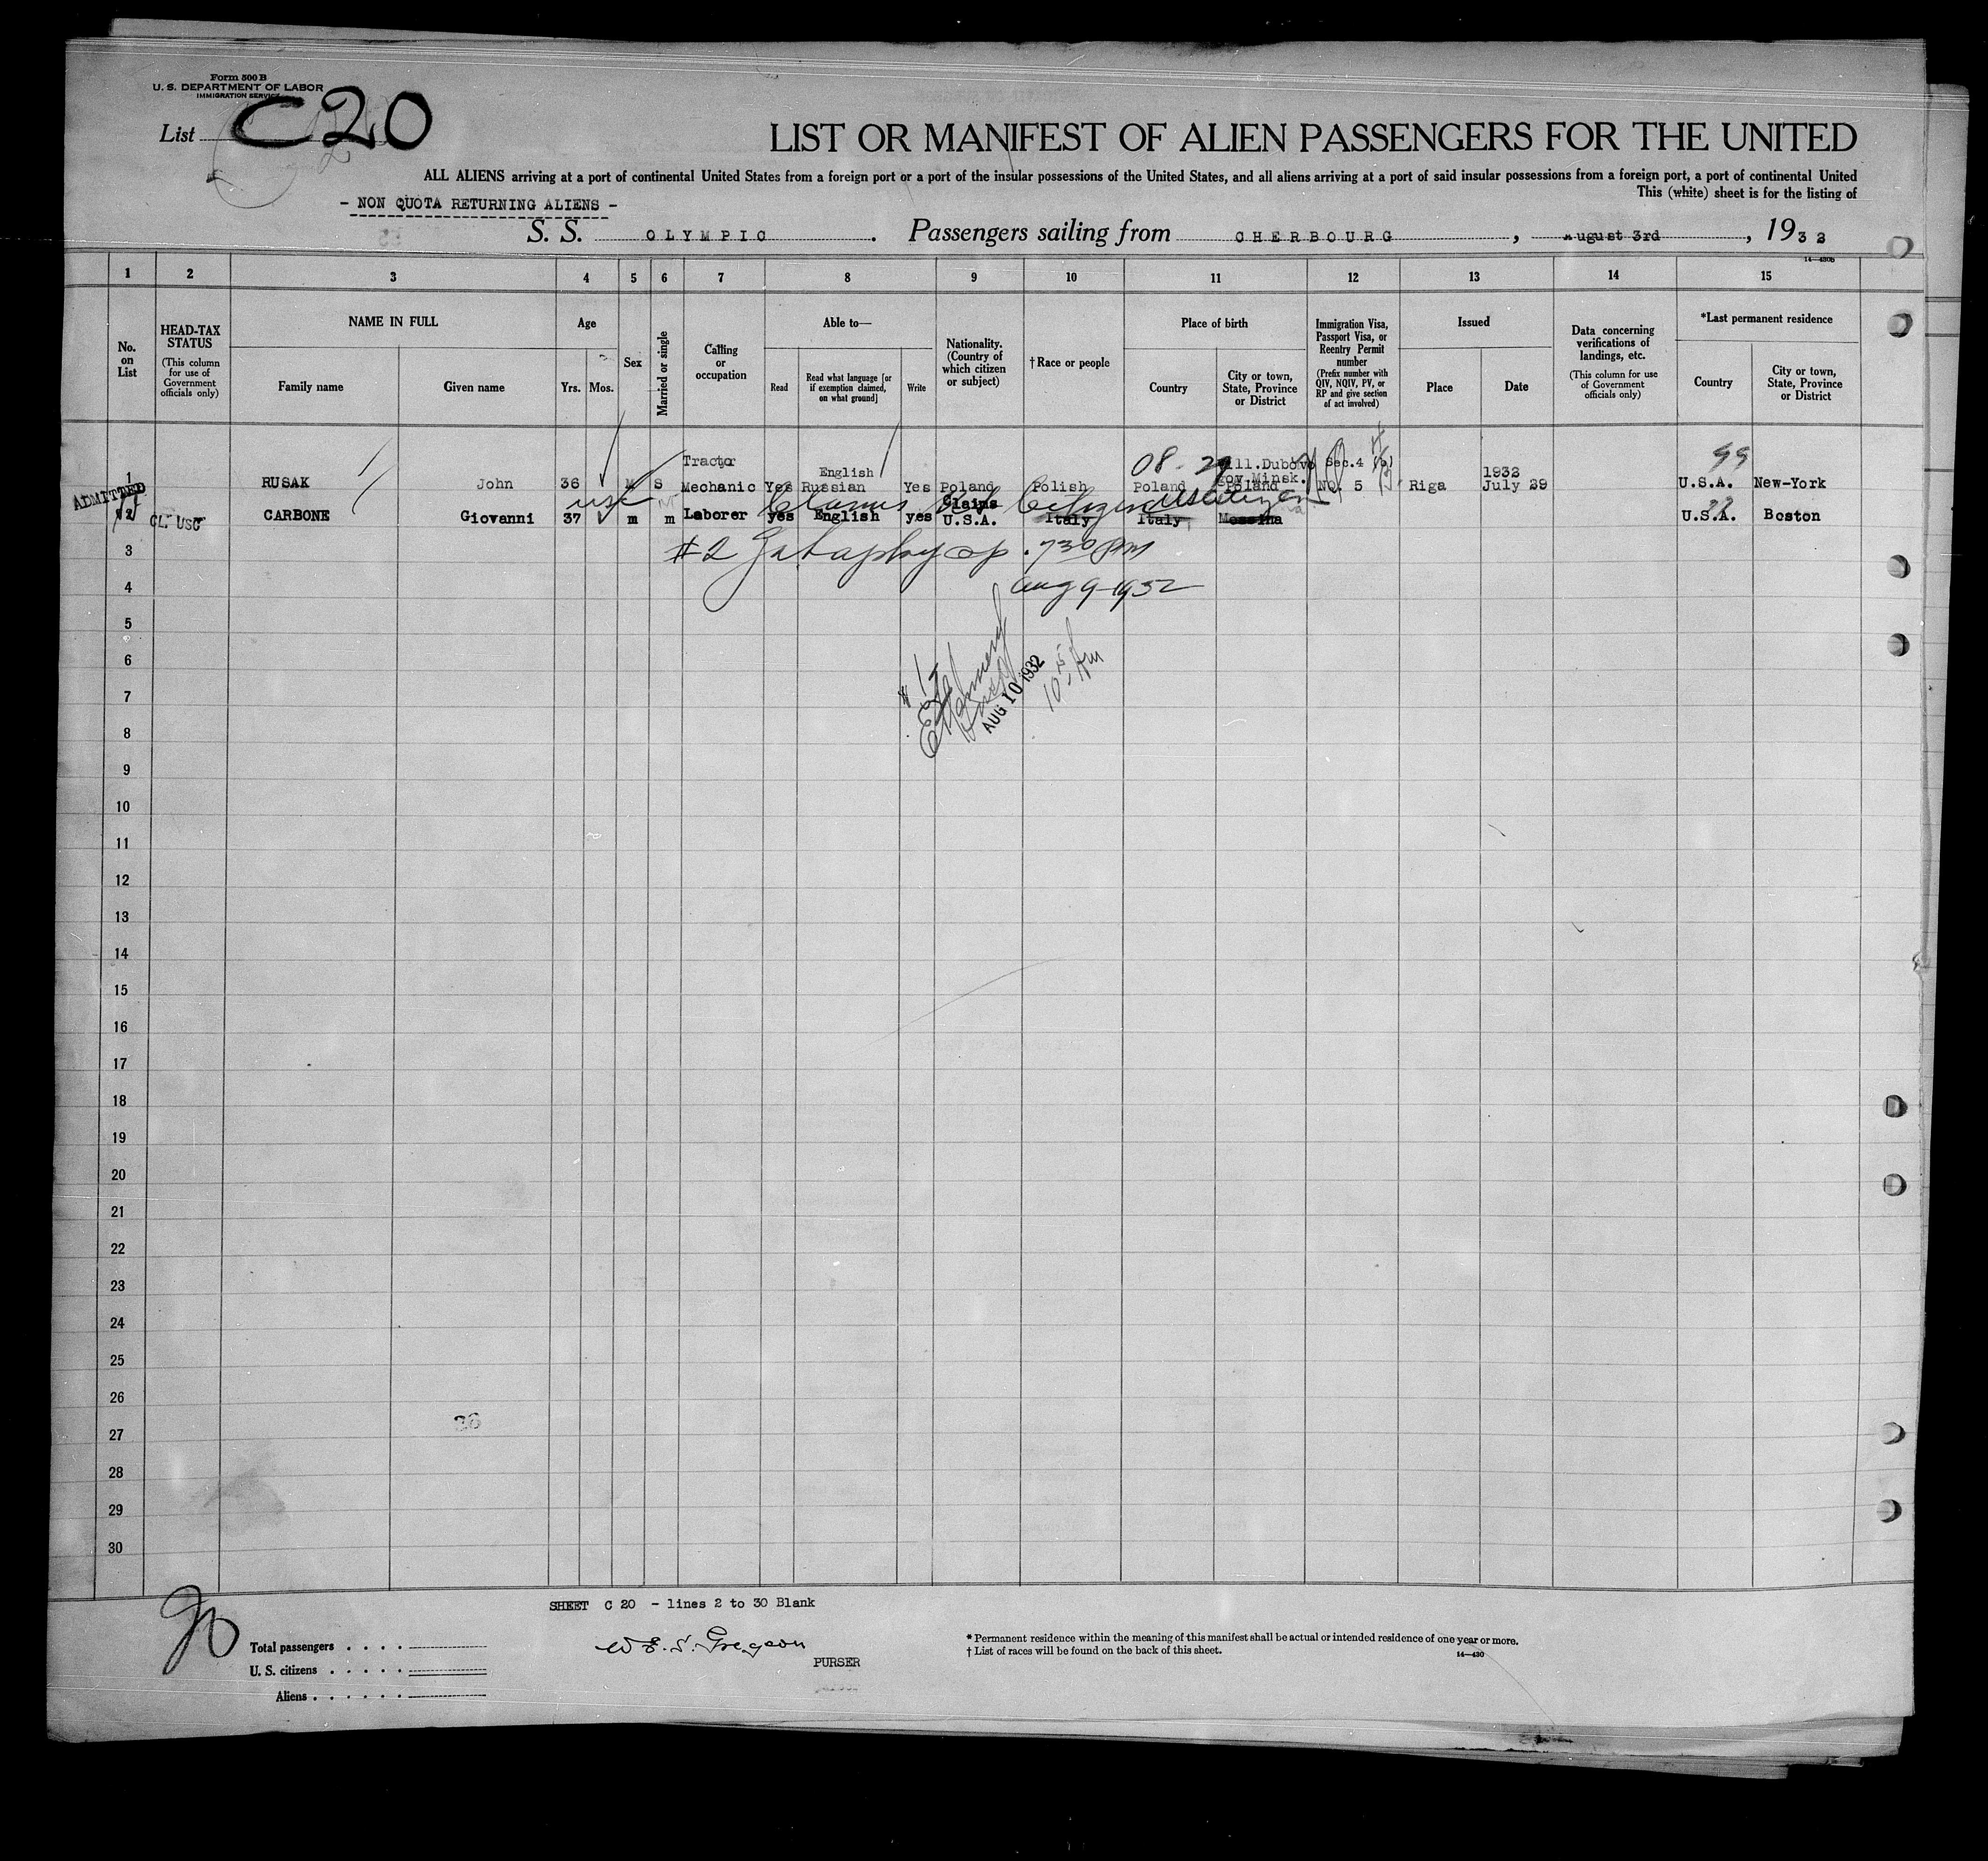 Form 500 B
U. S. DEPARTMENT OF LABOR
IMMIGRATION SERVICE
List C20
LIST OR MANIFEST OF ALIEN PASSENGERS FOR THE UNITED
ALL ALIENS arriving at a port of continental United States from a foreign port or a port of the insular possessions of the United States, and all aliens arriving at a port of said insular possessions from a foreign port, a port of continental United
This (white) sheet is for the listing of
- NON QUOTA RETURNING ALIENS -
S. S. OLYMPIC. Passengers sailing from CHERBOURG, August 3rd, 1932
14—430B
1 2 3 4 5 6 7 8 9 10 11 12 13 14 15
No. on List
HEAD-TAX STATUS
(This column for use of Government officials only)
NAME IN FULL
Family name
Given name
Age
Yrs. Mos.
Sex
Married or single
Calling or occupation
Able to—
Read
Read what language [or if exemption claimed, on what ground]
Write
Nationality. (Country of which citizen or subject)
† Race or people
Place of birth
Country
City or town, State, Province or District
Immigration Visa, Passport Visa, or Reentry Permit number
(Prefix number with QIV, NQIV, PV, or RP and give section of act involved)
Issued
Place
Date
Data concerning verifications of landings, etc.
(This column for use of Government officials only)
*Last permanent residence
Country
City or town, State, Province or District
1 RUSAK John 36 M S Tractor Mechanic Yes English Russian Yes Poland Polish Poland Vill.Dubovo Gov.Minsk. Poland Sec.4 (b) NQ. 5 Riga 1932 July 29 U.S.A. New-York
08-29
99
ADMITTED
usc Claims US Citizen US Citizen
2 CL. USC CARBONE Giovanni 37 m m Laborer yes English yes Claims U.S.A. Italy Italy Messina U.S.A. Boston
3
#2 730 PM
4
Aug 9-1932
5
6
#1
7
AUG 10 1932
8
9
10
11
12
13
14
15
16
17
18
19
20
21
22
23
24
25
26
27
28
29
30
SHEET C 20 - lines 2 to 30 Blank
Total passengers
U. S. citizens
Aliens
PURSER
* Permanent residence within the meaning of this manifest shall be actual or intended residence of one year or more.
† List of races will be found on the back of this sheet.
14—430